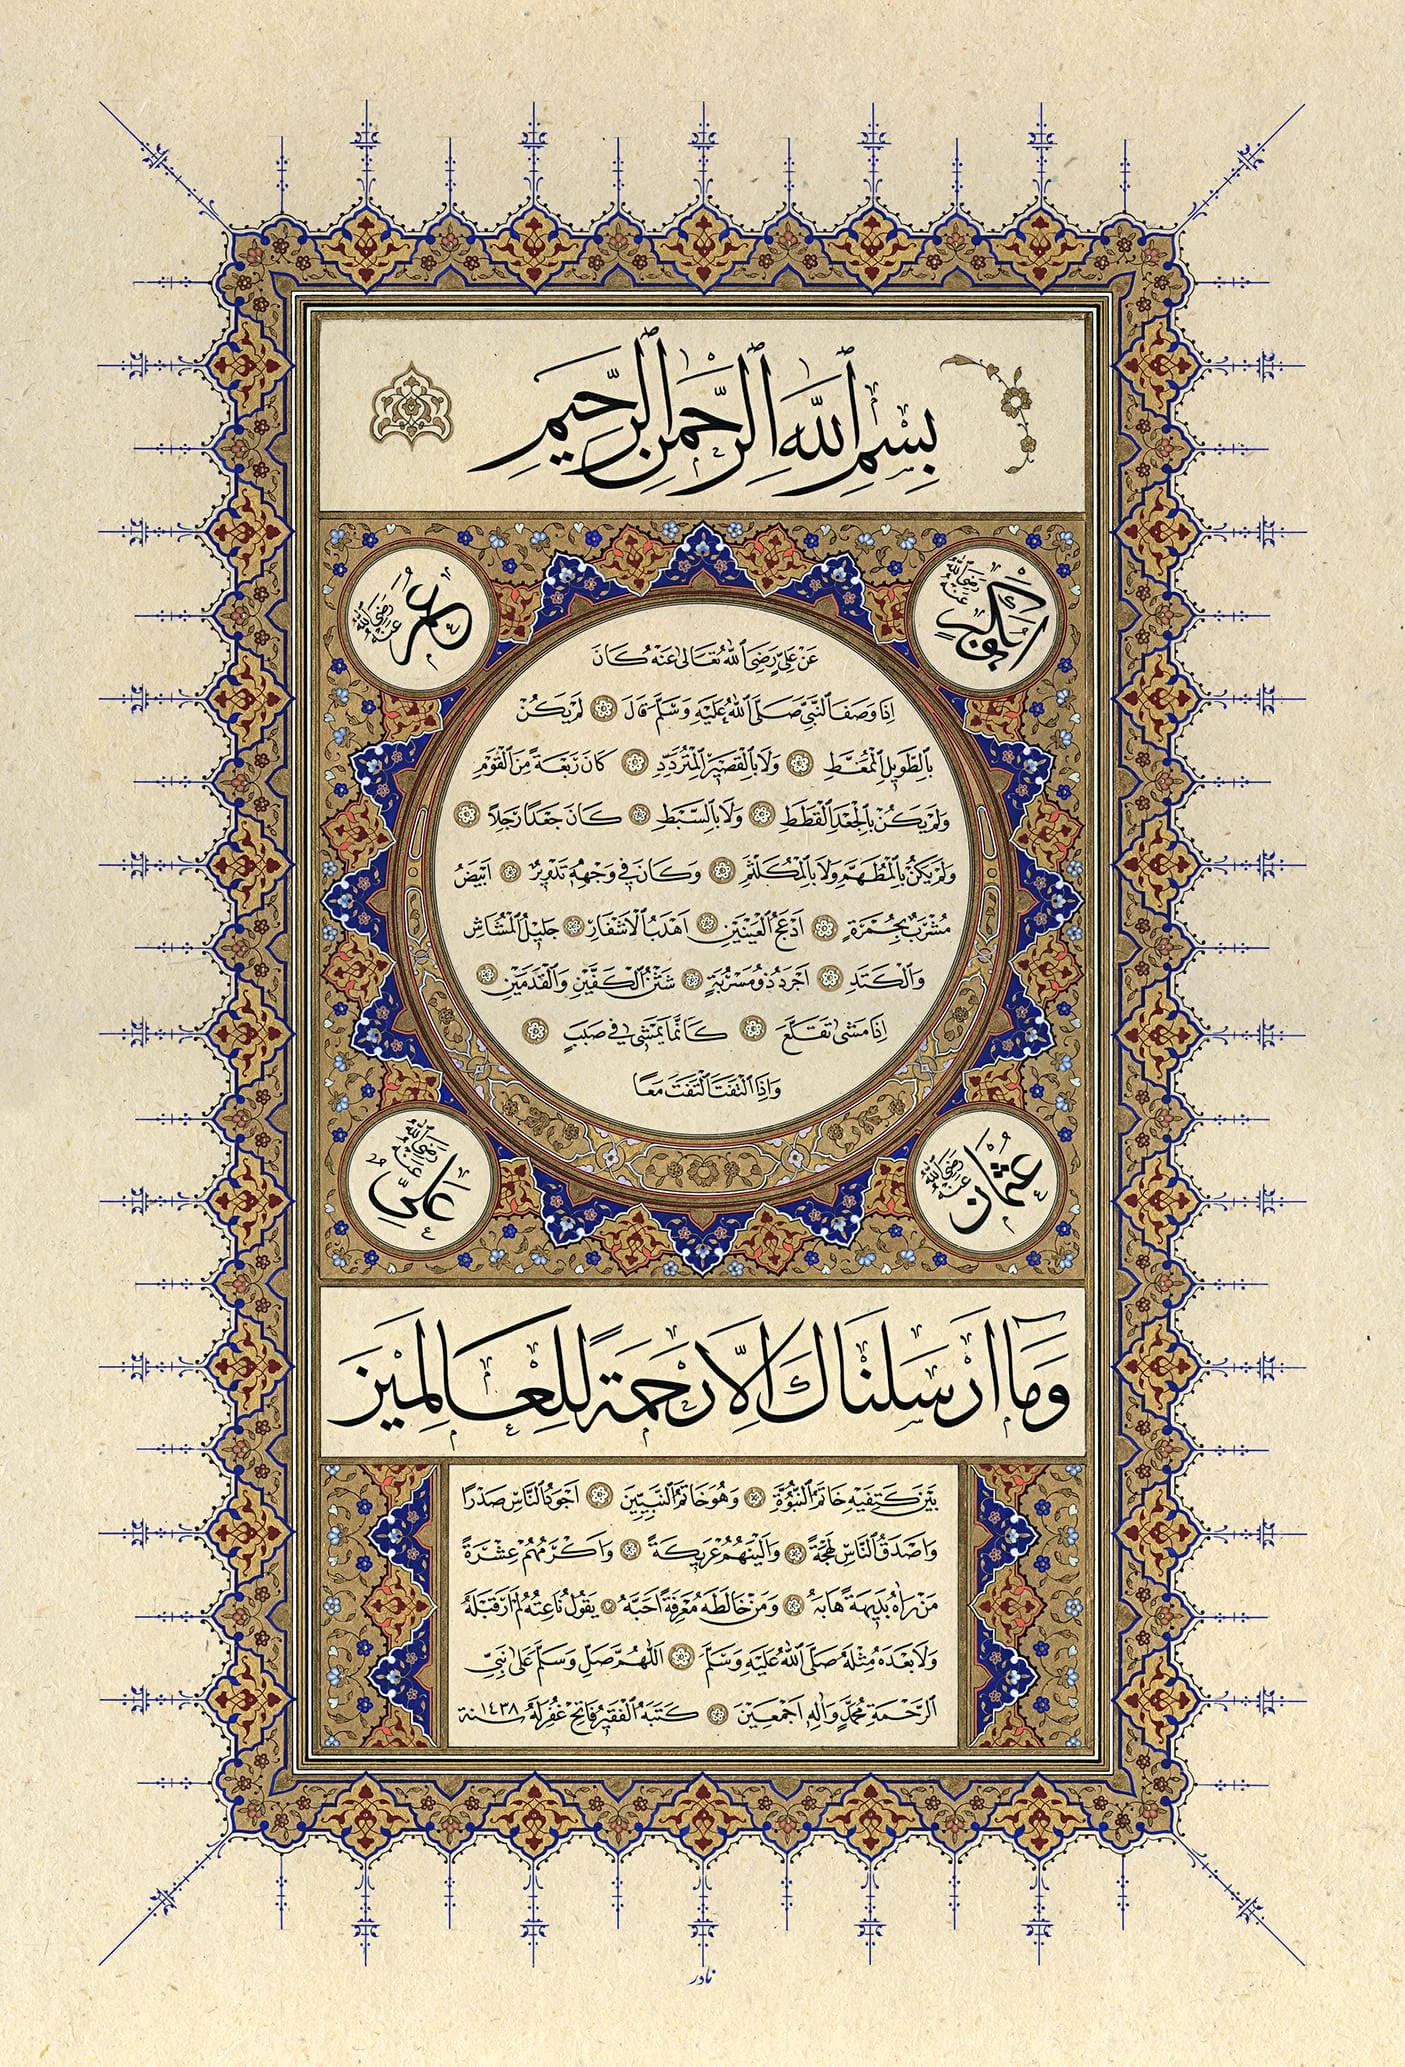 بِسْمِ ٱللَّهِ ٱلرَّحْمٰنِ ٱلرَّحِيمِ
ابو بكر رضي الله عنه
عمر رضي الله عنه
عَنْ عَلِيٍّ رَضِيَ ٱللهُ تَعَالىٰ عَنْهُ كَانَ
اِذَا وَصَفَ ٱلنَّبِيَّ صَلَّى ٱللهُ عَلَيْهِ وَسَلَّمَ قَالَ لَمْ يَكُنْ
بِٱلطَّوِيلِ ٱلْمُمَّغِطِ وَلَا بِٱلْقَصِيرِ ٱلْمُتَرَدِّدِ كَانَ رَبْعَةً مِنَ ٱلْقَوْمِ
وَلَمْ يَكُنْ بِٱلْجَعْدِ ٱلْقَطَطِ وَلَا بِٱلسَّبِطِ كَانَ جَعْدًا رَجِلاً
وَلَمْ يَكُنْ بِٱلْمُطَهَّمِ وَلَا بِٱلْمُكَلْثَمِ وَكَانَ فِي وَجْهِهِ تَدْوِيرٌ اَبْيَضُ
مُشْرَبٌ بِحُمْرَةٍ اَدْعَجُ ٱلْعَيْنَيْنِ اَهْدَبُ ٱلْاَشْفَارِ جَلِيلُ ٱلْمُشَاشِ
وَٱلْكَتَدِ اَجْرَدُ ذُو مَسْرُبَةٍ شَثْنُ ٱلْكَفَّيْنِ وَٱلْقَدَمَيْنِ
اِذَا مَشٰى تَقَلَّعَ كَاَنَّمَا يَمْشِي فِي صَبَبٍ
وَاِذَا ٱلْتَفَتَ ٱلْتَفَتَ مَعًا
عثمان رضي الله عنه
علي رضي الله عنه
وَمَا اَرْسَلْنَاكَ اِلَّا رَحْمَةً لِلْعَالَمِينَ
بَيْنَ كَتِفَيْهِ خَاتَمُ ٱلنُّبُوَّةِ وَهُوَ خَاتَمُ ٱلنَّبِيِّينَ اَجْوَدُ ٱلنَّاسِ صَدْرًا
وَاَصْدَقُ ٱلنَّاسِ لَهْجَةً وَاَلْيَنُهُمْ عَرِيكَةً وَاَكْرَمُهُمْ عِشْرَةً
مَنْ رَاٰهُ بَدِيهَةً هَابَهُ وَمَنْ خَالَطَهُ مَعْرِفَةً اَحَبَّهُ يَقُولُ نَاعِتُهُ لَمْ اَرَ قَبْلَهُ
وَلَا بَعْدَهُ مِثْلَهُ صَلَّى ٱللهُ عَلَيْهِ وَسَلَّمَ اَللّٰهُمَّ صَلِّ وَسَلِّمْ عَلىٰ نَبِيِّ
ٱلرَّحْمَةِ مُحَمَّدٍ وَاٰلِهِ اَجْمَعِينَ كَتَبَهُ ٱلْفَقِيرُ فَاتِحْ غُفِرَلَهُ سنة ١٤٣٨
نادر